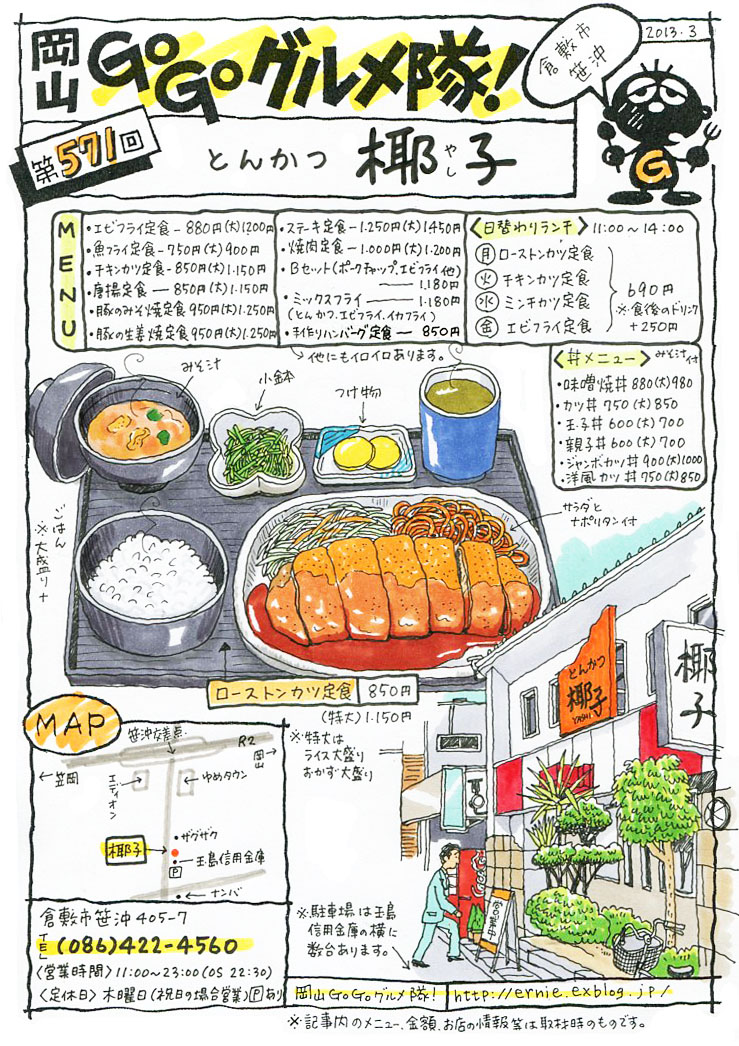 岡山 GoGoグルメ隊!
倉敷市
笹沖
2013.3
第571回
とんかつ 椰子
やし
G
MENU
・エビフライ定食ー880円(大)1200円
・魚フライ定食ー750円(大)900円
・チキンカツ定食ー850円(大)1.150円
・唐揚定食ー850円(大)1.150円
・豚のみそ焼定食 950円(大)1.250円
・豚の生姜焼定食 950円(大)1.250円
・ステーキ定食ー1.250円(大)1450円
・焼肉定食ー1.000円(大)1.200円
・Bセット(ポークチャップ、エビフライ他)
ー1.180円
・ミックスフライー1.180円
(とんかつ、エビフライ、イカフライ)
・手作りハンバーグ定食ー850円
他にもイロイロあります。
〈日替わりランチ〉11:00〜14:00
月 ローストンカツ定食
火 チキンカツ定食
水 ミンチカツ定食
金 エビフライ定食
690円
※食後のドリンク
+250円
〈丼メニュー〉みそ汁付
・味噌焼丼 880(大)980
・カツ丼 750(大)850
・玉子丼 600(大)700
・親子丼 600(大)700
・ジャンボカツ丼 900(大)1000
・洋風カツ丼 750(大)850
みそ汁
小鉢
つけ物
ごはん
※大盛り+
サラダと
ナポリタン付
ローストンカツ定食 850円
(特大)1.150円
※特大は
ライス大盛り
おかず大盛り
とんかつ
椰子
YASHI
椰子
営業中
MAP
笹沖交差点
R2
岡山
←笠岡
エディオン
ゆめタウン
・ザグザグ
椰子
・玉島信用金庫
P
・ナンバ
倉敷市笹沖405-7
TEL(086)422-4560
〈営業時間〉11:00〜23:00(OS 22:30)
〈定休日〉木曜日(祝日の場合営業)Pあり
※駐車場は玉島
信用金庫の横に
数台あります。
岡山GoGoグルメ隊!
http://ernie.exblog.jp/
※記事内のメニュー、金額、お店の情報等は取材時のものです。